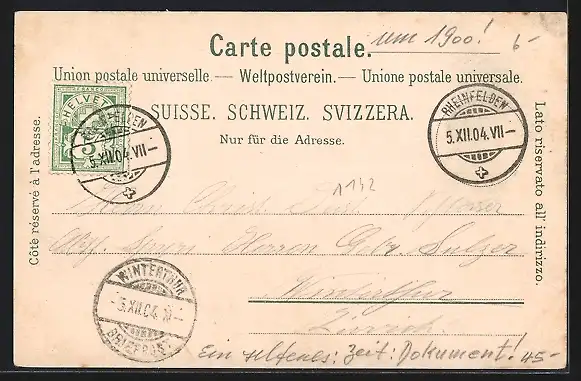 Carte postale. um 1900! 6-
Union postale universelle. — Weltpostverein. — Unione postale universale.
HELVETIA
FRANCO
5
SUISSE. SCHWEIZ. SVIZZERA.
Nur für die Adresse.
RHEINFELDEN
5.XII.04.VII—
RHEINFELDEN
5.XII.04.VII—
Côté réservé à l'adresse.
Lato riservato all' indirizzo.
1142
Herrn Christ
Herren Gebr. Sulzer
Winterthur
Zürich
WINTERTHUR
5.XII.04
BRIEFPOST
Ein seltenes: Zeit: Dokument! 45-